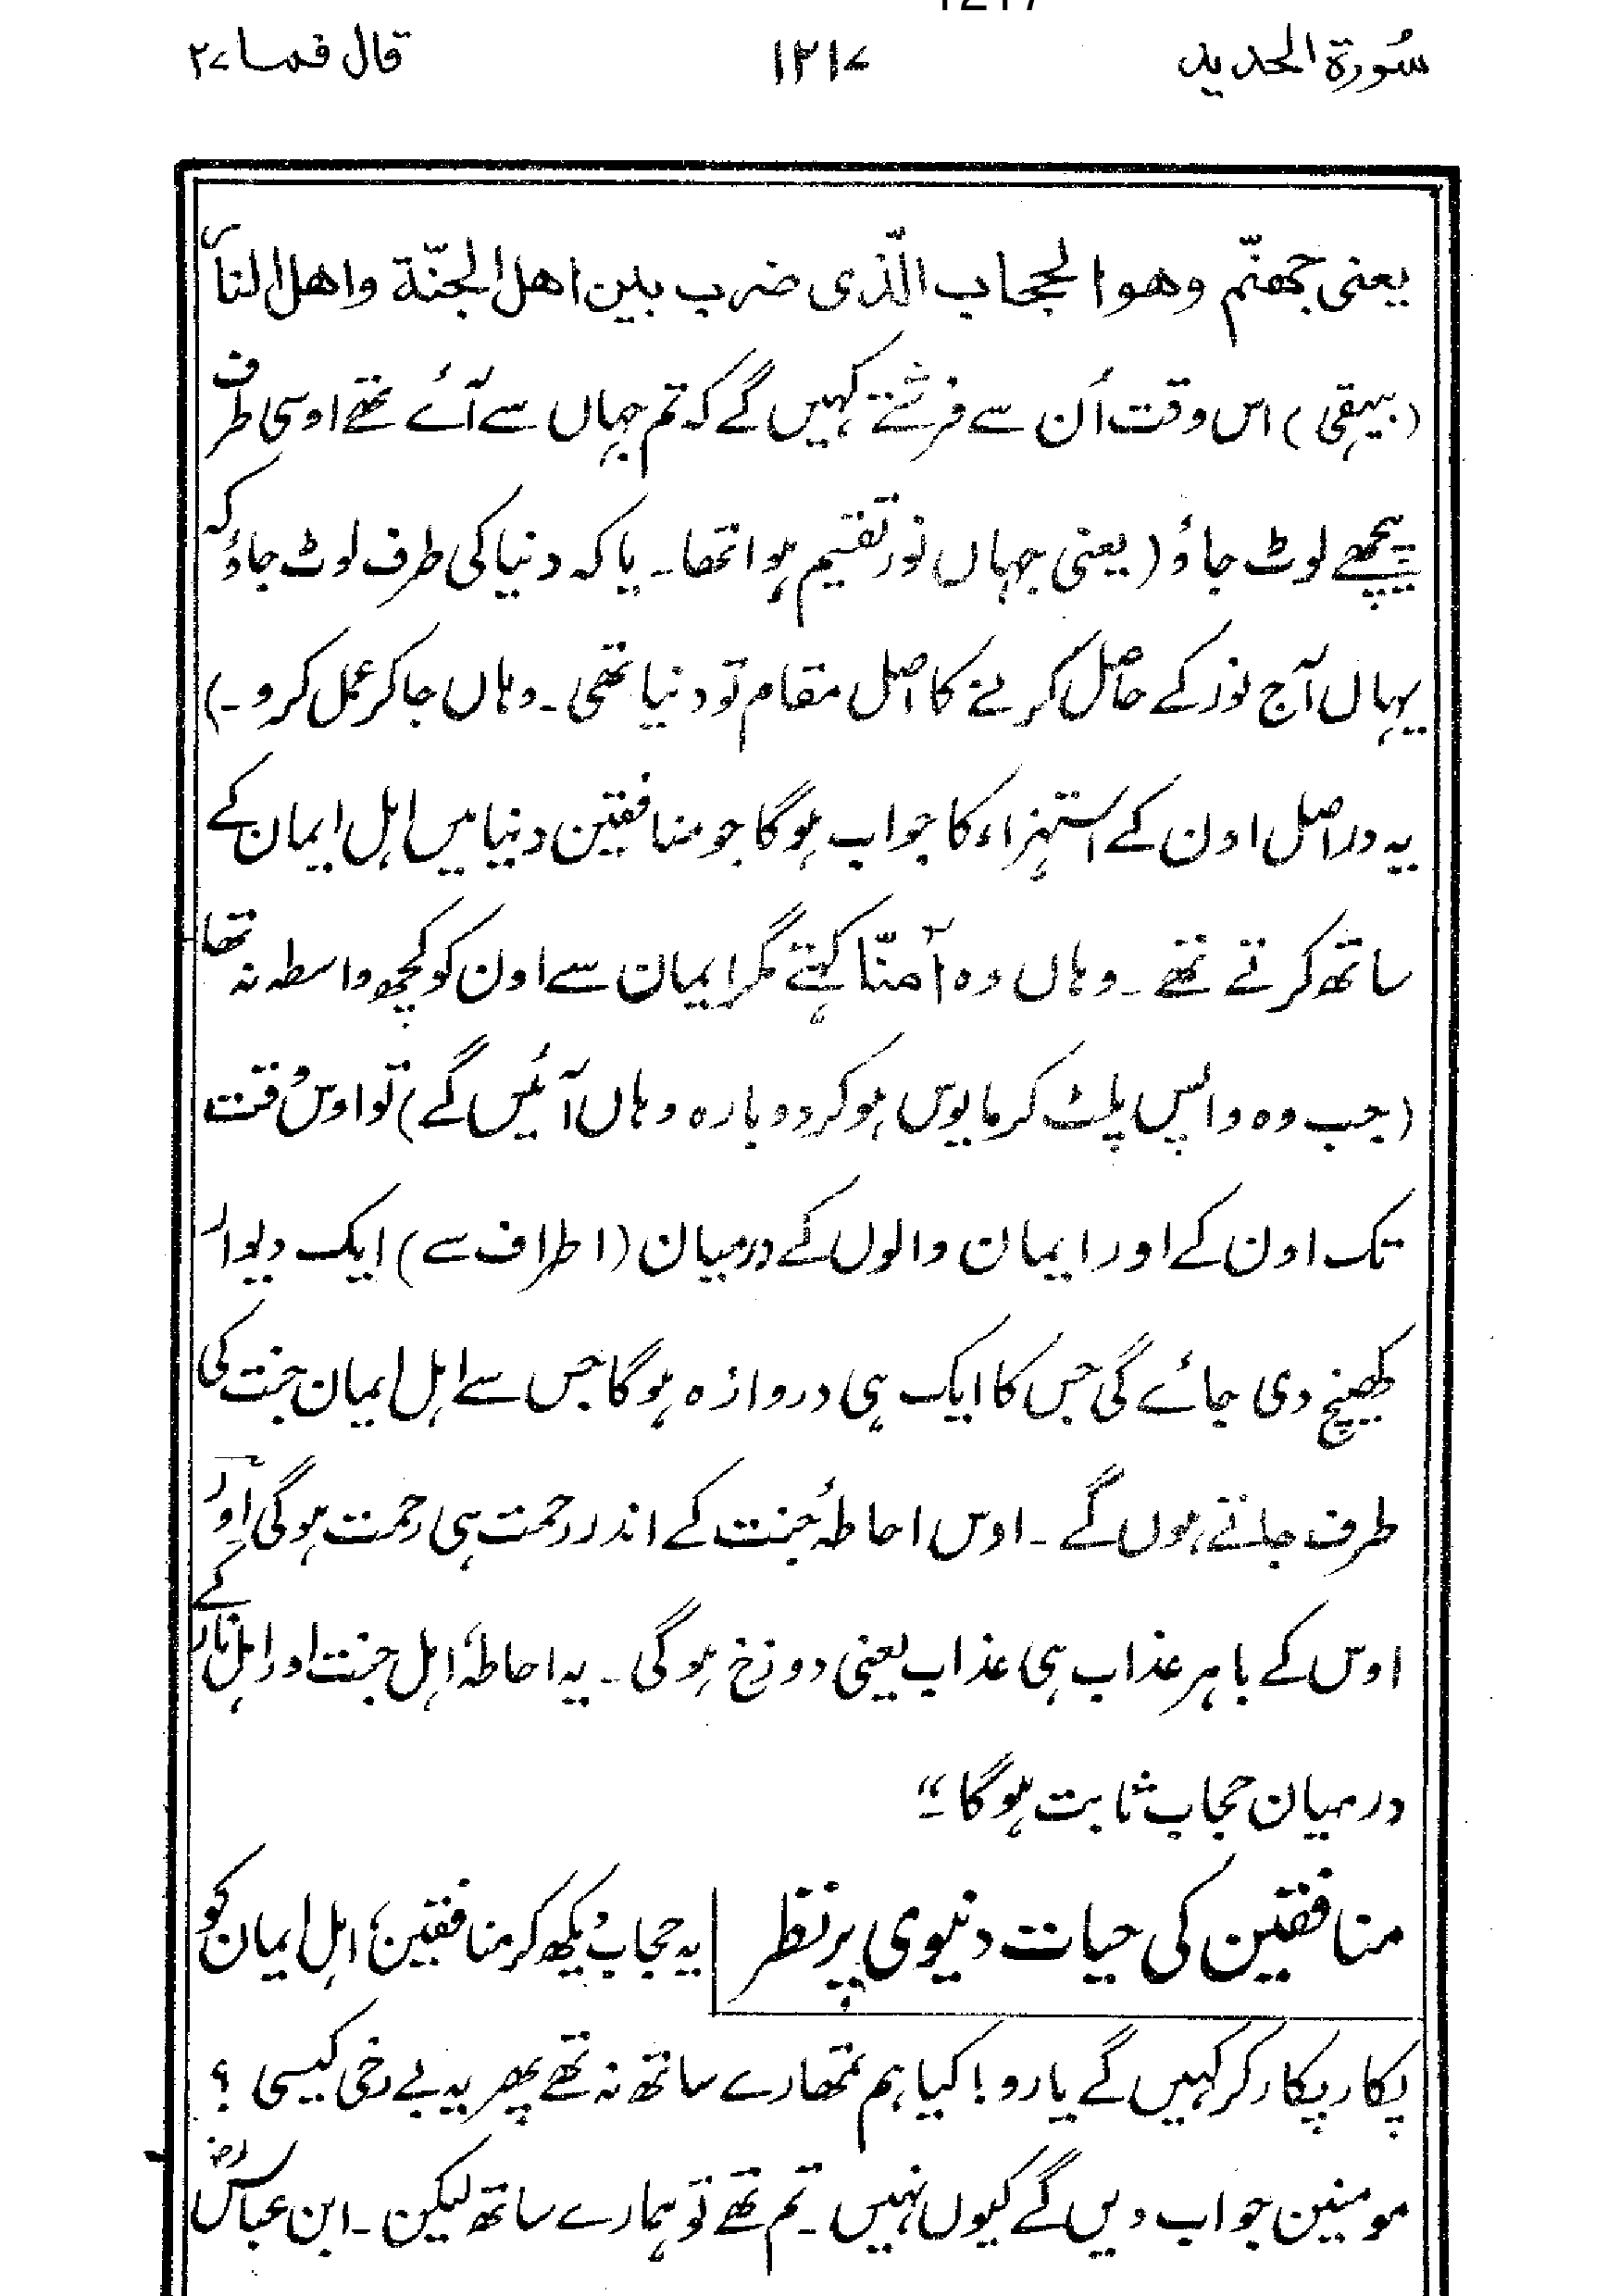 سُورۃ الحدید ۱۲۱۷ قال فما ۲۷
یعنی جھنّم وھوا لحجاب الّذی ضرب بین اھل الجنّة واھل النار
(بیہقی) اس وقت اُن سے فرشتے کہیں گے کہ تم جہاں سے آئے تھے اوسی طرف
پیچھے لوٹ جاؤ (یعنی جہاں نور تقسیم ہوا تھا۔ یا کہ دنیا کی طرف لوٹ جاؤ کہ
یہاں آج نور کے حاصل کرنے کا اصل مقام تو دنیا تھی۔ وہاں جا کر عمل کرو۔)
یہ دراصل اون کے استہزاء کا جواب ہوگا جو منافقین دنیا میں اہل ایمان کے
ساتھ کرتے تھے۔ وہاں وہ اٰمنّا کہتے مگر ایمان سے اون کو کچھ واسطہ نہ تھا
(جب وہ واپس پلٹ کر مایوس ہو کر دوبارہ وہاں آئیں گے) تو اوس وقت
تک اون کے اور ایمان والوں کے درمیان (اطراف سے) ایک دیوار
کھینچ دی جائے گی جس کا ایک ہی دروازہ ہوگا جس سے اہل ایمان جنت کی
طرف جاتے ہوں گے۔ اوس احاطۂ جنت کے اندر رحمت ہی رحمت ہوگی اور
اوس کے باہر عذاب ہی عذاب یعنی دوزخ ہوگی۔ یہ احاطۂ اہل جنت اور اہل نار کے
درمیان حجاب ثابت ہوگا۔“
منافقین کی حیات دنیوی پر نظر | یہ حجاب دیکھ کر منافقین، اہل ایمان کو
پکار پکار کر کہیں گے یارو! کیا ہم تمھارے ساتھ نہ تھے پھر یہ بے رخی کیسی؟
مومنین جواب دیں گے کیوں نہیں۔ تم تھے تو ہمارے ساتھ لیکن۔ ابن عباسؓ